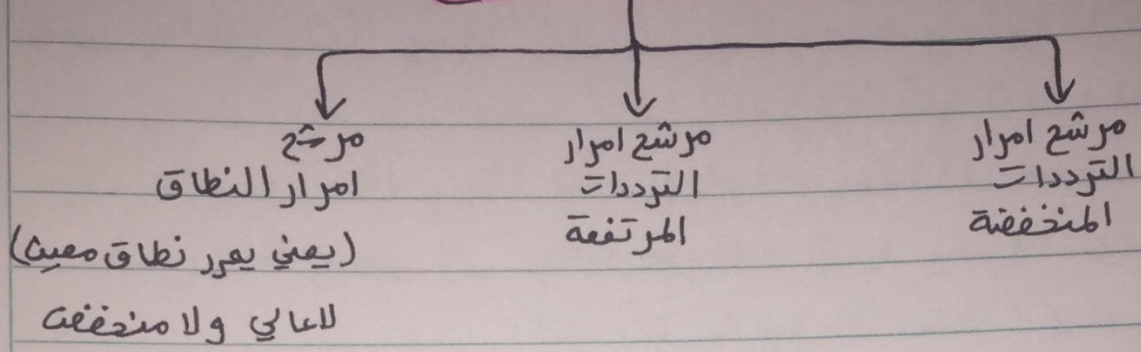 مرشح امرار
الترددات
المنخفضة
مرشح امرار
الترددات
المرتفعة
مرشح
امرار النطاق
(يعني يمرر نطاق معين)
لا عالي ولا منخفض